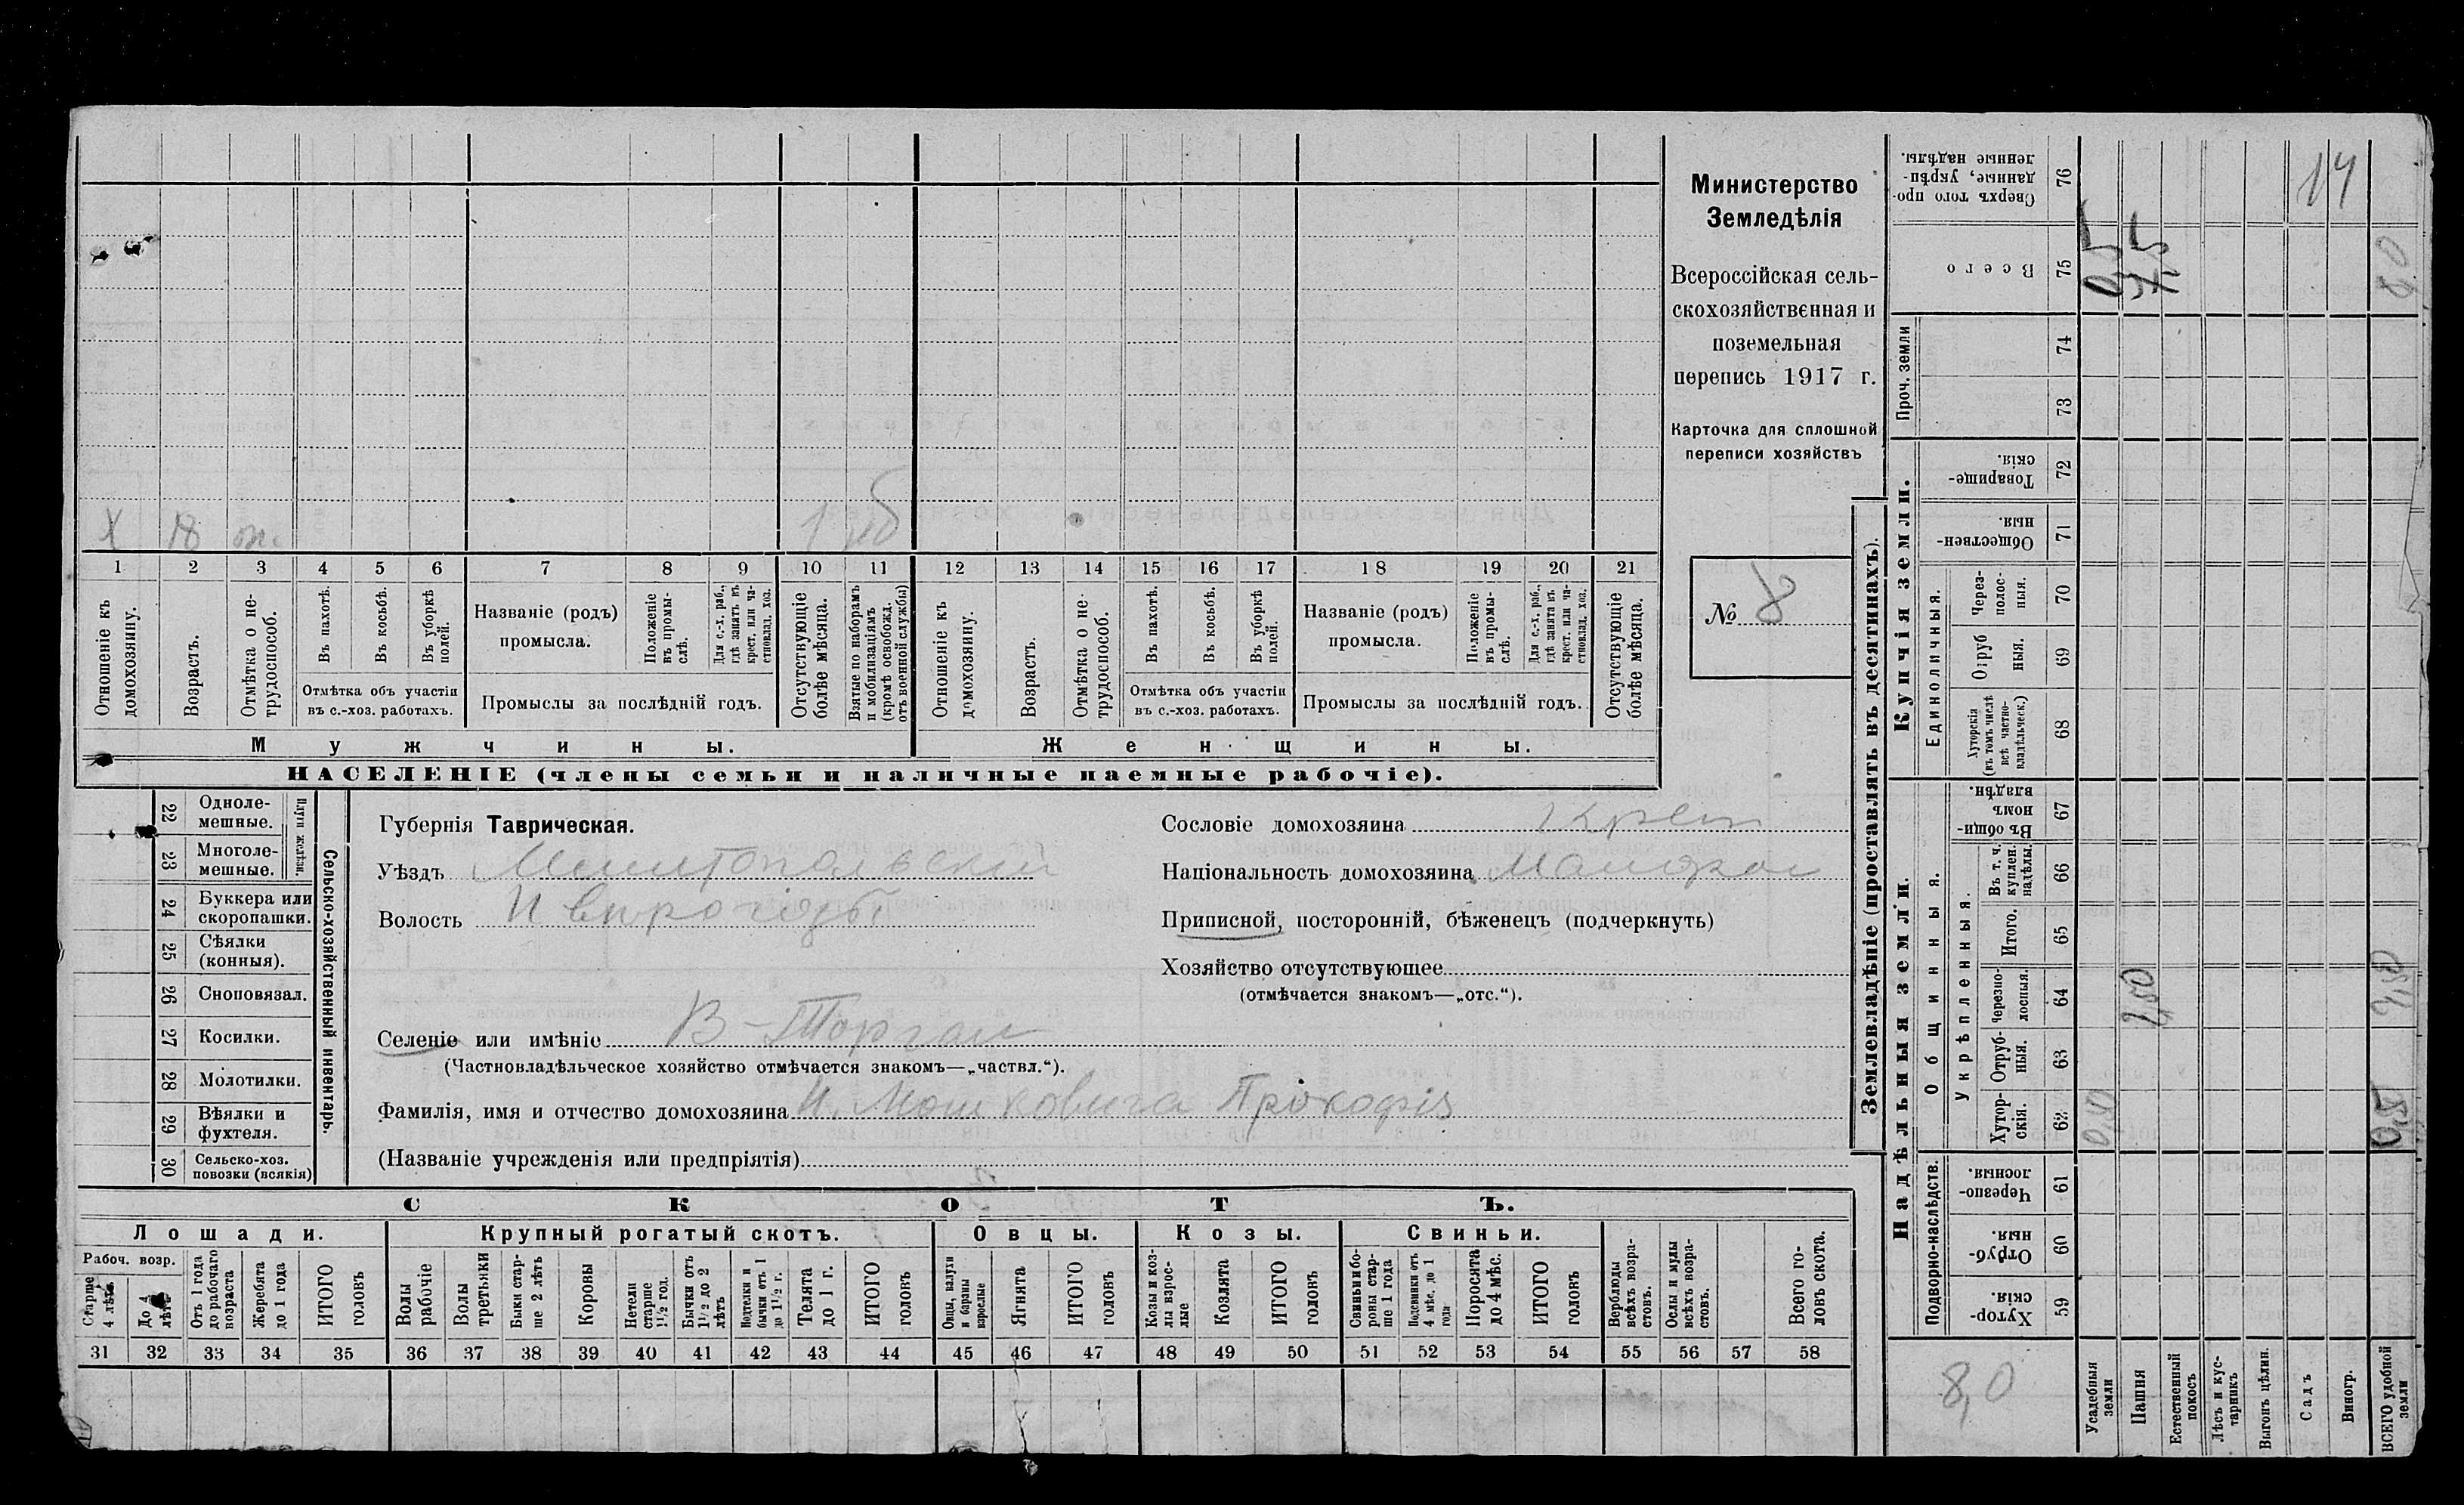 Х 18 1
1 2 3 4 5 6 7 8 9 10 11 12 13 14 15 16 17 18 19 20 21
Отношеніе къ домохозяину.
Возрастъ.
Отмѣтка о нетрудоспособ.
Въ пахотѣ.
Въ косьбѣ.
Въ уборкѣ полей.
Отмѣтка объ участіи
въ с.-хоз. работахъ.
Названіе (родъ)
промысла.
Положеніе въ промыслѣ.
Для с.-х. раб., гдѣ занятъ въ крест. или частновлад. хоз.
Промыслы за послѣдній годъ.
Отсутствующіе болѣе мѣсяца.
Взятые по наборамъ и мобилизаціямъ (кромѣ освобожд. отъ военной службы)
Отношеніе къ домохозяину.
Возрастъ.
Отмѣтка о нетрудоспособ.
Въ пахотѣ.
Въ косьбѣ.
Въ уборкѣ полей.
Отмѣтка объ участіи
въ с.-хоз. работахъ.
Названіе (родъ)
промысла.
Положеніе въ промыслѣ.
Для с.-х. раб., гдѣ занята въ крест. или частновлад. хоз.
Промыслы за послѣдній годъ.
Отсутствующіе болѣе мѣсяца.
Мужчины. Женщины.
НАСЕЛЕНІЕ (члены семьи и наличные наемные рабочіе).
Министерство
Земледѣлія
Всероссійская сель-
скохозяйственная и
поземельная
перепись 1917 г.
Карточка для сплошной
переписи хозяйствъ
№ 8
Сельско-хозяйственный инвентарь.
Плуги желѣзн.
22 Одноле-
мешные.
23 Многоле-
мешные.
24 Буккера или
скоропашки.
25 Сѣялки
(конныя).
26 Сноповязал.
27 Косилки.
28 Молотилки.
29 Вѣялки и
фухтеля.
30 Сельско-хоз.
повозки (всякія)
Губернія Таврическая.
Уѣздъ Мелитопольскій
Волость
Селеніе или имѣніе В-Торгаи
(Частновладѣльческое хозяйство отмѣчается знакомъ—„частвл.“).
Фамилія, имя и отчество домохозяина Прокофія
(Названіе учрежденія или предпріятія)
Сословіе домохозяина Крест
Національность домохозяина Малорос
Приписной, посторонній, бѣженецъ (подчеркнуть)
Хозяйство отсутствующее
(отмѣчается знакомъ—„отс.“).
СКОТЪ.
Лошади. Крупный рогатый скотъ. Овцы. Козы. Свиньи.
Рабоч. возр.
Старше 4 лѣтъ
До 4 лѣтъ
Отъ 1 года до рабочаго возраста
Жеребята до 1 года
ИТОГО головъ
Волы рабочіе
Волы третьяки
Быки старше 2 лѣтъ
Коровы
Нетели старше 1½ год.
Бычки отъ 1½ до 2 лѣтъ
Подтелки и бычки отъ 1 до 1½ г.
Телята до 1 г.
ИТОГО головъ
Овцы, валухи и бараны взрослые
Ягнята
ИТОГО головъ
Козы и козлы взрослые
Козлята
ИТОГО головъ
Свиньи и боровы старше 1 года
Подсвинки отъ 4 мѣс. до 1 года
Поросята до 4 мѣс.
ИТОГО головъ
Верблюды всѣхъ возрастовъ.
Ослы и мулы всѣхъ возрастовъ.
Всего головъ скота.
31 32 33 34 35 36 37 38 39 40 41 42 43 44 45 46 47 48 49 50 51 52 53 54 55 56 57 58
Землевладѣніе (проставлять въ десятинахъ).
Надѣльныя земли.
Купчія земли.
Проч. земли
Подворно-наслѣдств.
Общинныя.
Укрѣпленныя.
Единоличныя.
Хуторскія. 59
Отрубныя 60
Черезполосныя. 61
Хуторскія. 62
Отрубныя. 63
Черезполосныя. 64
Итого. 65
Въ т. ч. куплен. надѣлы. 66
Въ общинномъ владѣн. 67
Хуторскія (въ томъ числѣ всѣ частновладѣльческ.) 68
Отрубныя. 69
Черезполосныя. 70
Общественныя. 71
Товарищескія. 72
73
74
Всего 75
Сверхъ того проданные, укрѣпленные надѣлы. 76
14
0,5
7,5
8,0
7,50
0,5
8,0
Усадебныя земли
Пашня
Естественный покосъ
Лѣсъ и кустарникъ
Выгонъ цѣлин.
Садъ
Виногр.
ВСЕГО удобной земли